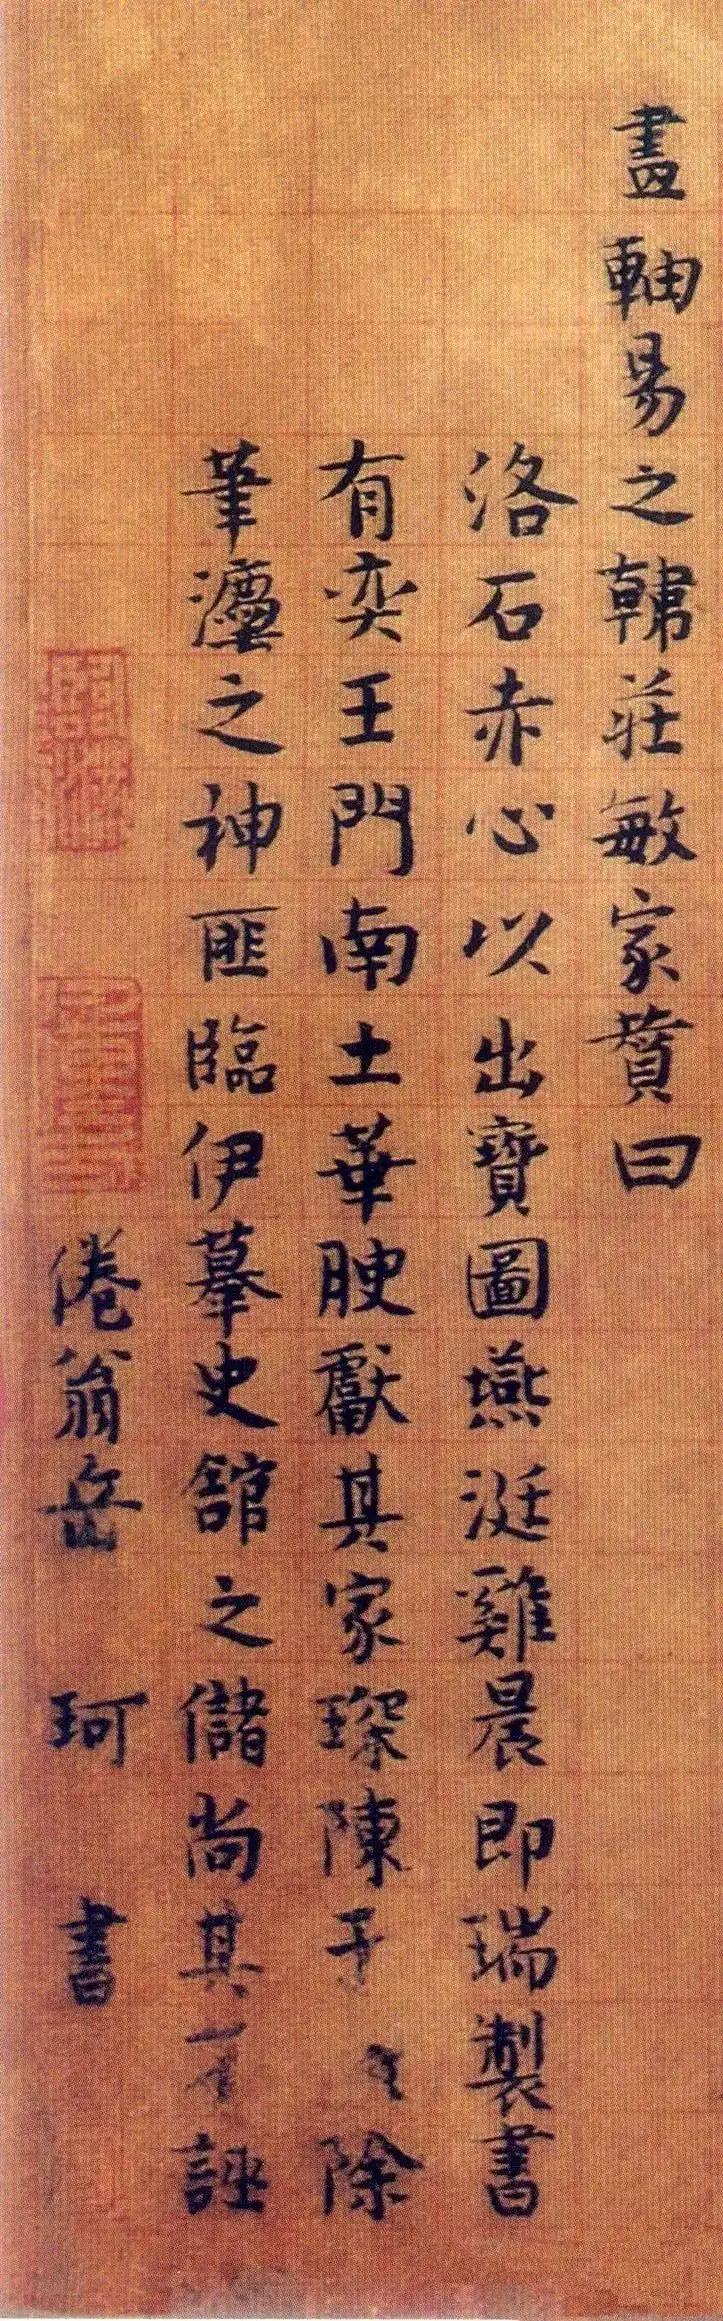 畫軸易之韓莊敏家贊曰
洛石赤心以出寶圖燕涏雞晨即瑞製書
有奕王門南土華腴獻其家琛陳于除
筆灋之神匪臨伊摹史館之儲尚其誣
倦翁岳珂書